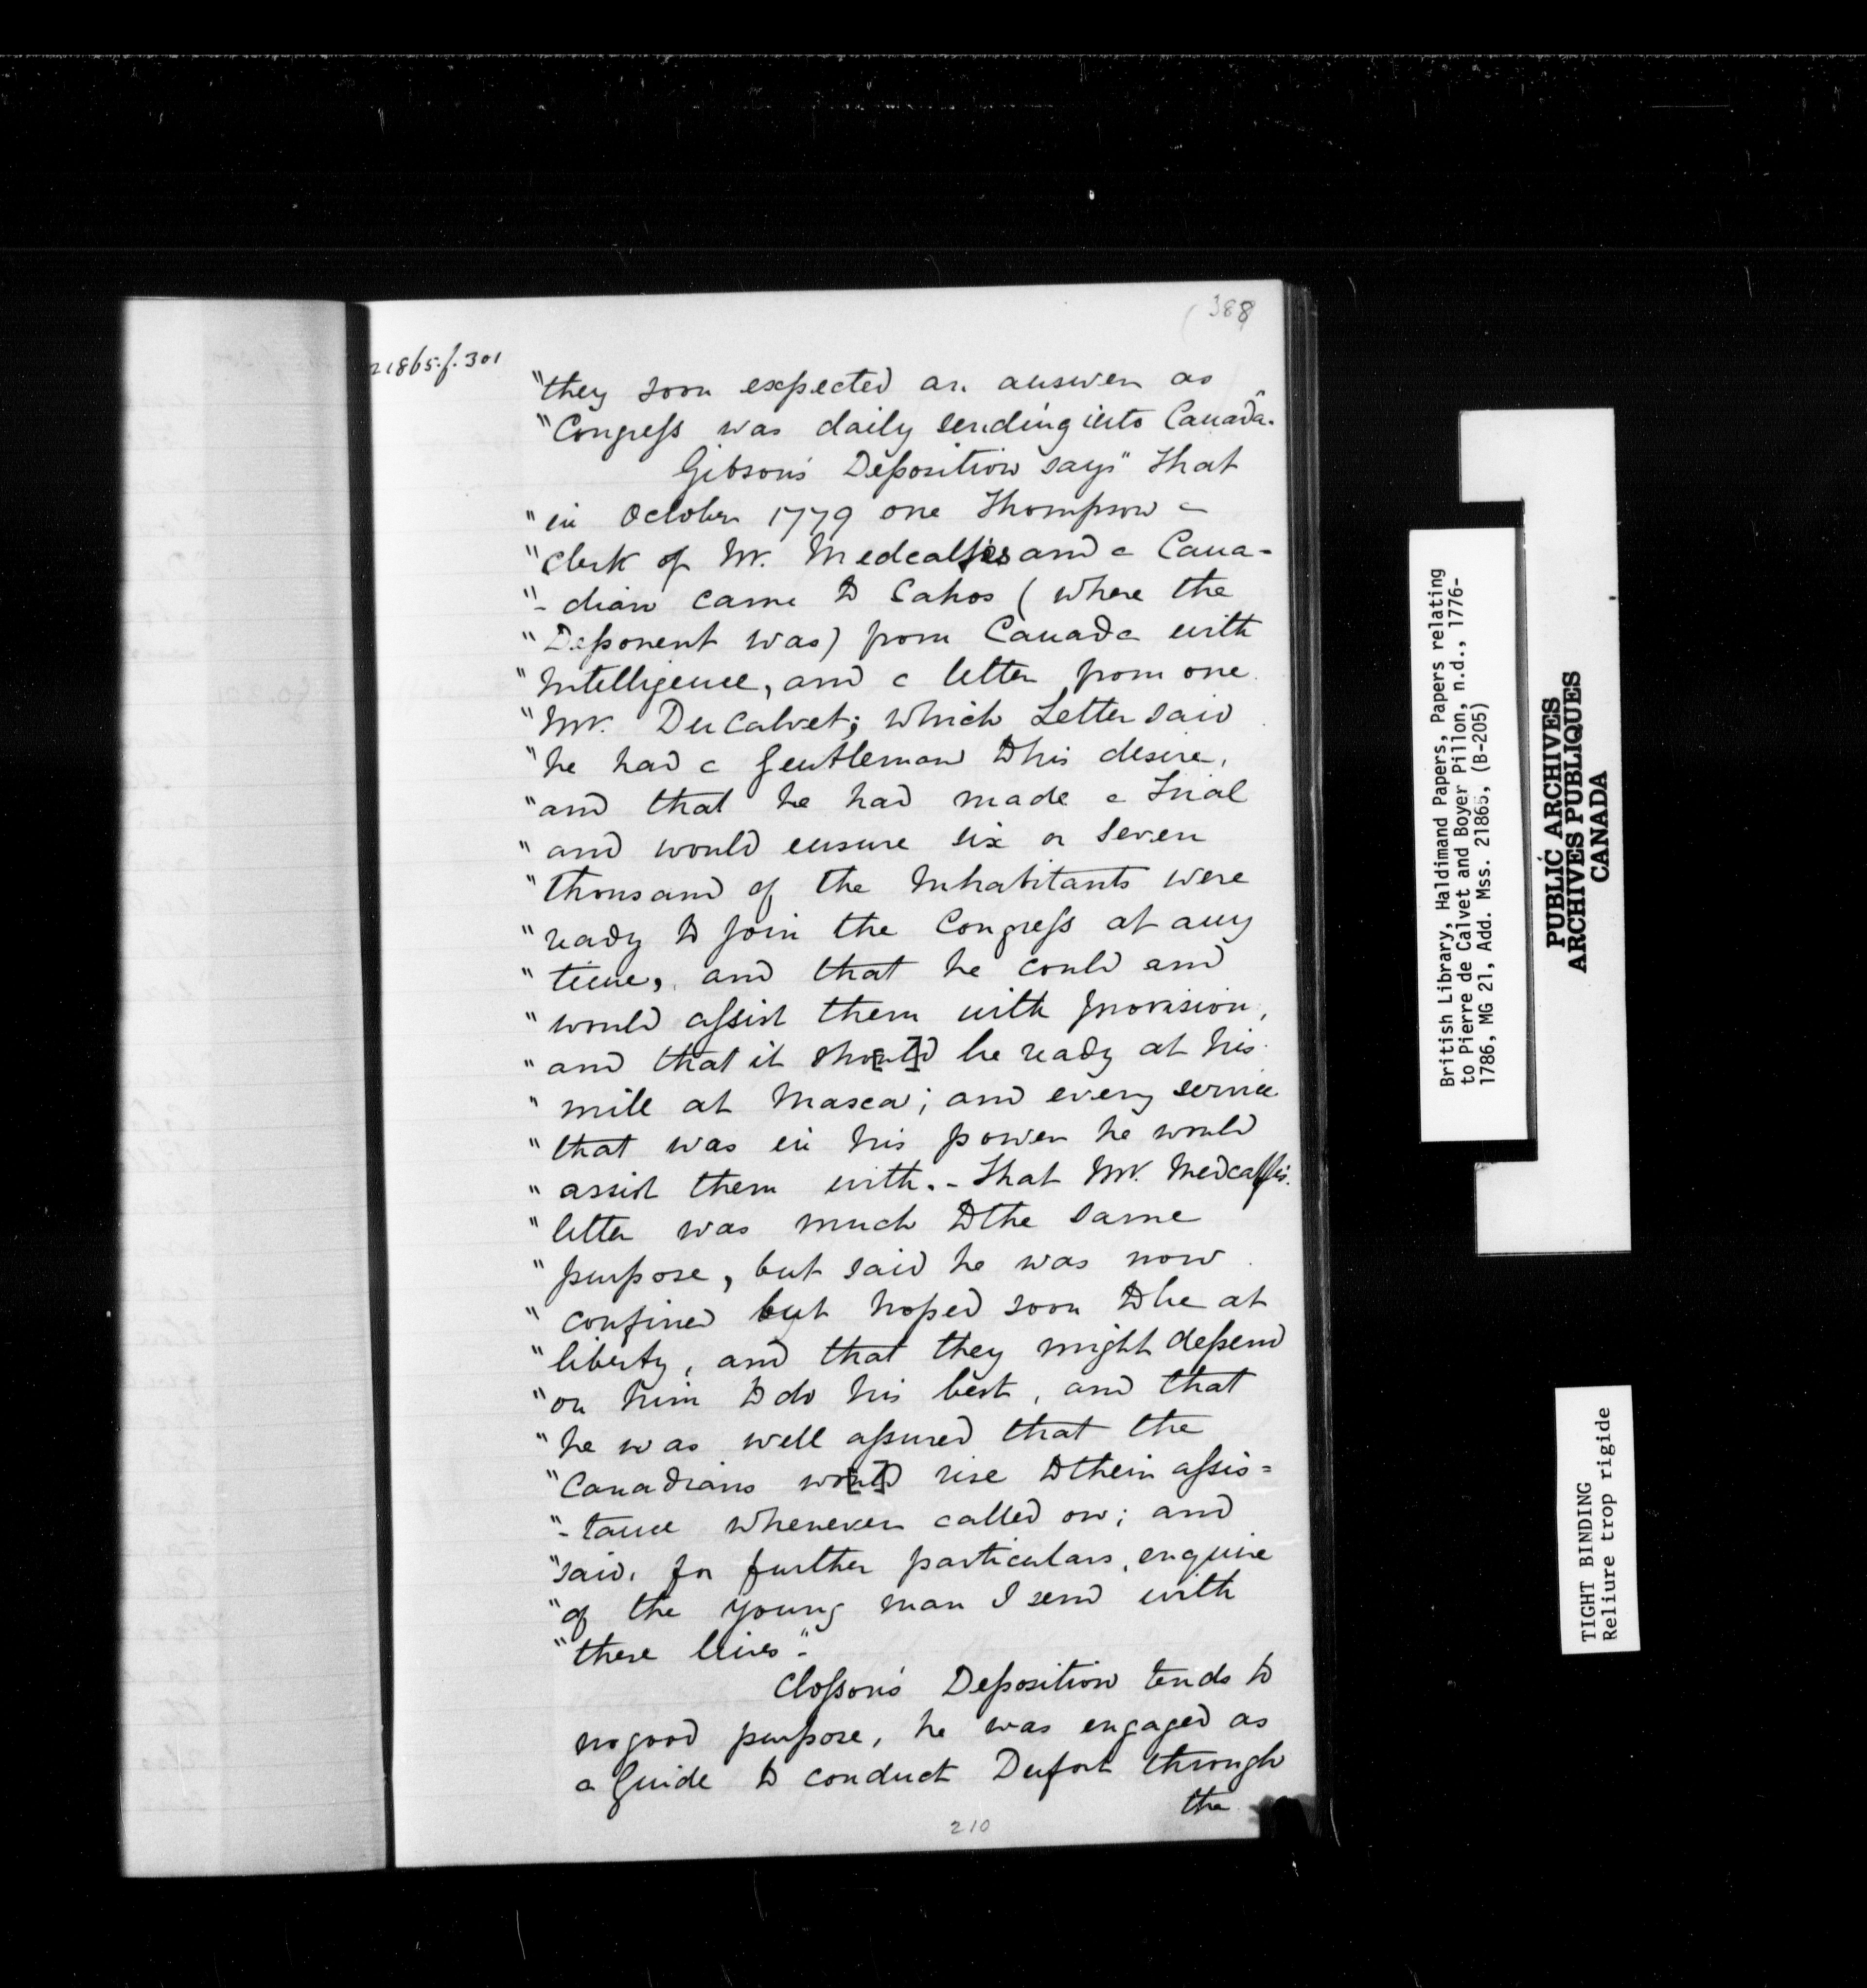 (388
21865.f.301
"they soon expected an answer as
"Congress was daily sending into Canada."
Gibson's Deposition says "that
"in October 1779 one Thompson a
"Clerk of Mr. Medcalfes and a Cana-
"-dian came to Cahos (where the
"Deponent was) from Canada with
"Intelligence, and a letter from one
"Mr. DuCalvet; which Letter said
"he had a Gentleman to his desire,
"and that he had made a Trial
"and would ensure six or seven
"thousand of the Inhabitants were
"ready to join the Congress at any
"time, and that he could and
"would assist them with provision,
"and that it should be ready at his
"mill at Masca; and every service
"that was in his power he would
"assist them with. - That Mr. Medcalfes
"letter was much to the same
"purpose, but said he was now
"confined but hoped soon to be at
"liberty, and that they might depend
"on him to do his best, and that
"he was well assured that the
"Canadians would rise to their assis=
"-tance whenever called on; and
"said, for further particulars, enquire
"of the young man I send with
"these lines".
Closson's Deposition tends to
no good purpose, he was engaged as
a Guide to conduct Dufort through
the
210
British Library, Haldimand Papers, Papers relating
to Pierre de Calvet and Boyer Pillon, n.d., 1776-
1786, MG 21, Add. Mss. 21865, (B-205)
PUBLIC ARCHIVES
ARCHIVES PUBLIQUES
CANADA
TIGHT BINDING
Reliure trop rigide